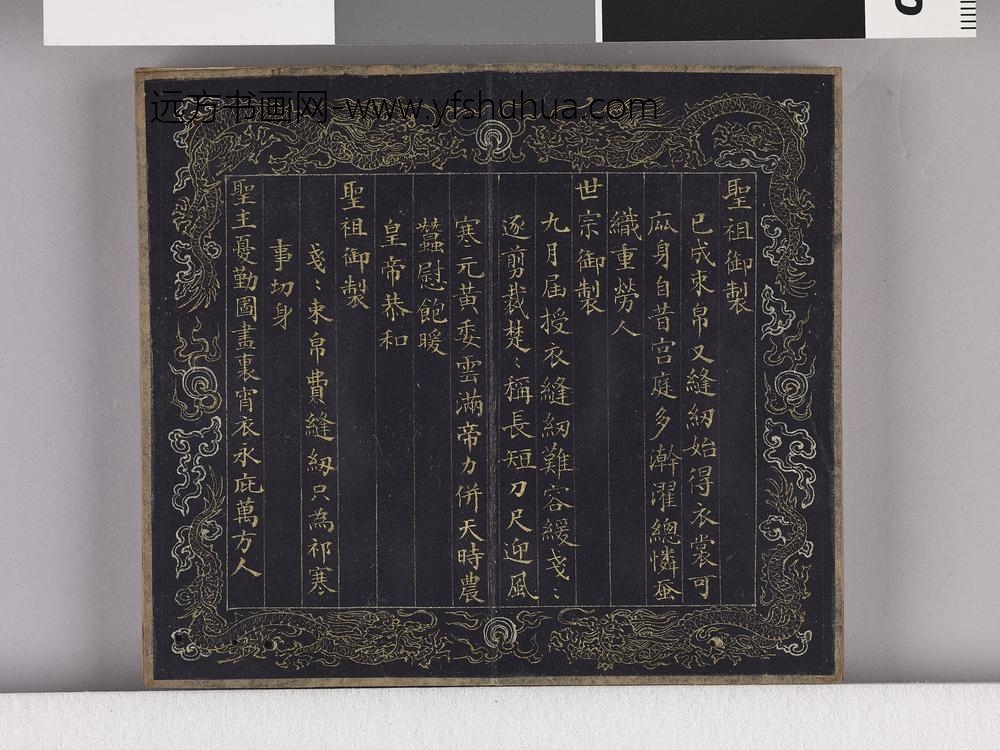 远方书画网-www.yfshuhua.com
聖祖御製
已成束帛又縫紉始得衣裳可
庇身自昔宫庭多澣濯總憐蚕
織重勞人
世宗御製
九月屆授衣縫紉難容緩戔〻
逐剪裁楚〻稱長短刀尺迎風
寒元黃委雲滿帝力併天時農
蠶慰飽暖
皇帝恭和
聖祖御製
戔〻束帛費縫紉只為祁寒
事切身
聖主憂勤圖畫裏宵衣永庇萬方人